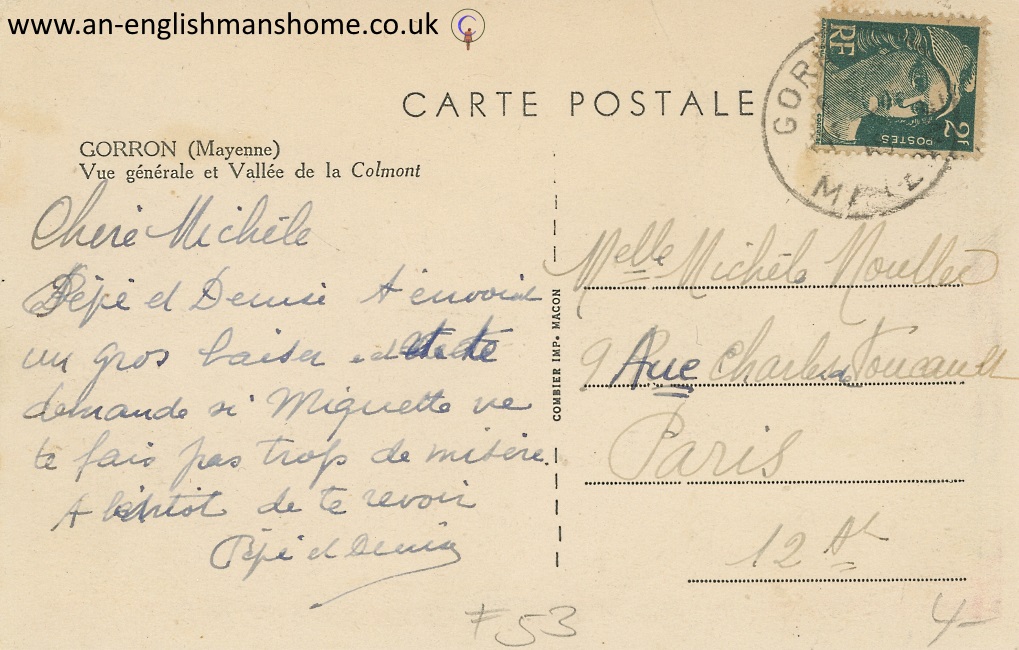 www.an-englishmanshome.co.uk
CARTE POSTALE
GORRON (Mayenne)
Vue générale et Vallée de la Colmont
RF
POSTES
2F
GORR
Chere Michèle
Pépé et Denise t'envoient
un gros baiser et te
demande si Miquette ne
te fais pas trop de misère.
A bientot de te revoir
Pépé et Denise
COMBIER IMP. MACON
Melle Michèle
9 Ave Charles de Foucault
Paris
12
F53
4-